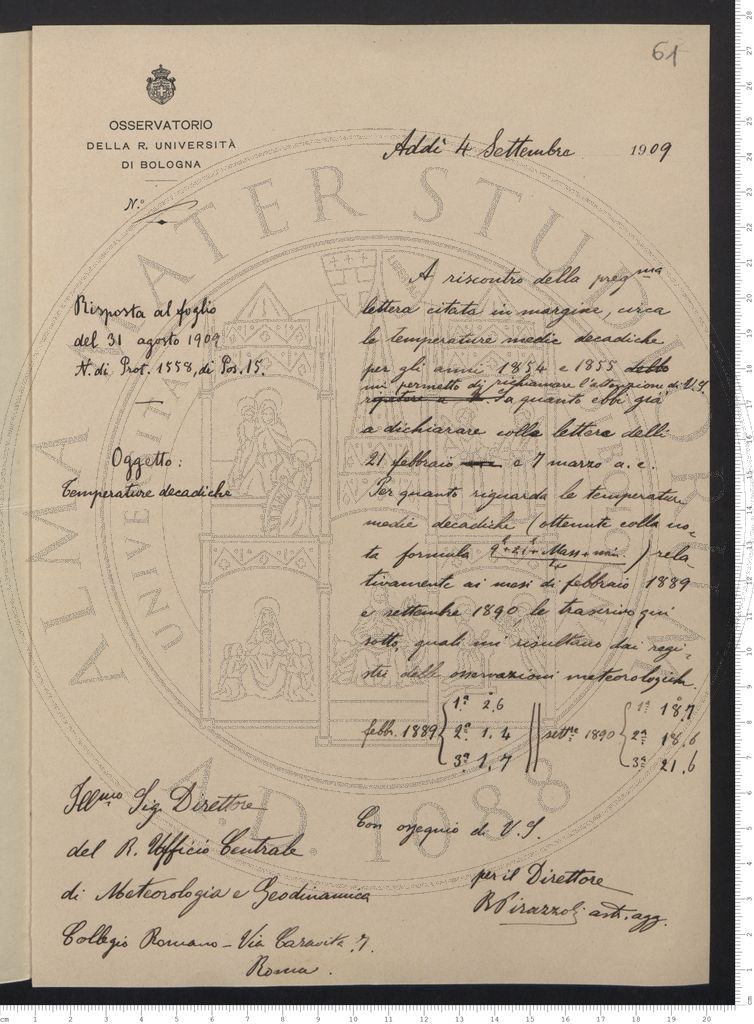 61
OSSERVATORIO
DELLA R. UNIVERSITÀ
DI BOLOGNA
N.º
Addì 4 Settembre 1909
Risposta al foglio
del 31 agosto 1909
N. di Prot. 1558, di Pos. 15.
Oggetto:
Temperature decadiche
A riscontro della preg.ma
lettera citata in margine, circa
le temperature medie decadiche
per gli anni 1854 e 1855 debbo
mi permetto di richiamare l'attenzione di V.S.
a quanto ebbi già
a dichiarare colle lettere delli
21 febbraio e 7 marzo a. c.
Per quanto riguarda le temperature
medie decadiche (ottenute colla no-
ta formula 9h+21h+Mass+min / 4) rela-
tivamente ai mesi di febbraio 1889
e settembre 1890, le trascrivo qui
sotto, quali mi risultano dai regi-
stri delle osservazioni meteorologiche.
febbr. 1889 { 1ª 2°.6 || settre 1890 { 1ª 18°.7
2ª 1.4 2ª 18.6
3ª 1.7 3ª 21.6
Con ossequio di V. S.
per il Direttore
R Pirazzoli astr. agg.
Illmo Sig. Direttore
del R. Ufficio Centrale
di Meteorologia e Geodinamica
Collegio Romano – Via Caravita 7.
Roma.
ALMA MATER STUDIORUM
A.D. 1088